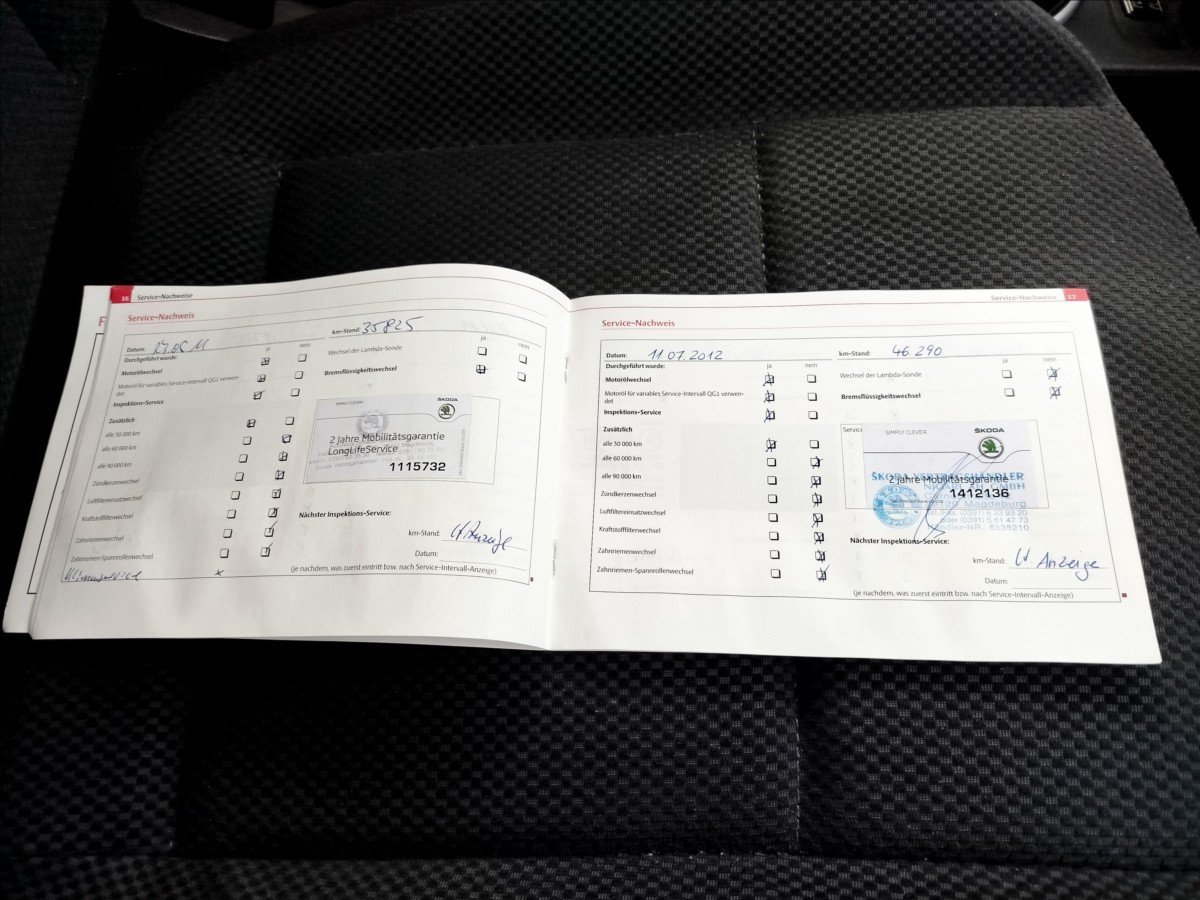 16 Service-Nachweise
Service-Nachweis
Datum: 27.06.11
km-Stand: 35825
ja nein
ja nein
Durchgeführt wurde:
Motorölwechsel
Motoröl für variables Service-Intervall QG1 verwen-
det
Inspektions-Service
Zusätzlich
alle 30 000 km
alle 60 000 km
alle 90 000 km
Zündkerzenwechsel
Luftfiltereinsatzwechsel
Kraftstofffilterwechsel
Zahnriemenwechsel
Zahnriemen-Spannrollenwechsel
Wechsel der Lambda-Sonde
Bremsflüssigkeitswechsel
SIMPLY CLEVER
ŠKODA
2 Jahre Mobilitätsgarantie
LongLifeService
1115732
Nächster Inspektions-Service:
km-Stand: lt Anzeige
Datum:
(je nachdem, was zuerst eintritt bzw. nach Service-Intervall-Anzeige)
Service-Nachweise 17
Service-Nachweis
Datum: 11.07.2012
km-Stand: 46.290
ja nein
ja nein
Durchgeführt wurde:
Motorölwechsel
Motoröl für variables Service-Intervall QG1 verwen-
det
Inspektions-Service
Zusätzlich
alle 30 000 km
alle 60 000 km
alle 90 000 km
Zündkerzenwechsel
Luftfiltereinsatzwechsel
Kraftstofffilterwechsel
Zahnriemenwechsel
Zahnriemen-Spannrollenwechsel
Wechsel der Lambda-Sonde
Bremsflüssigkeitswechsel
SIMPLY CLEVER
ŠKODA
ŠKODA VERTRAGSHÄNDLER
2 Jahre Mobilitätsgarantie
GMBH
1412136
Magdeburg
Tel./Fax: (0391) 6 23 93 20
oder (0391) 5 61 47 73
Händler-NR.: 6538210
Nächster Inspektions-Service:
km-Stand: lt Anzeige
Datum:
(je nachdem, was zuerst eintritt bzw. nach Service-Intervall-Anzeige)